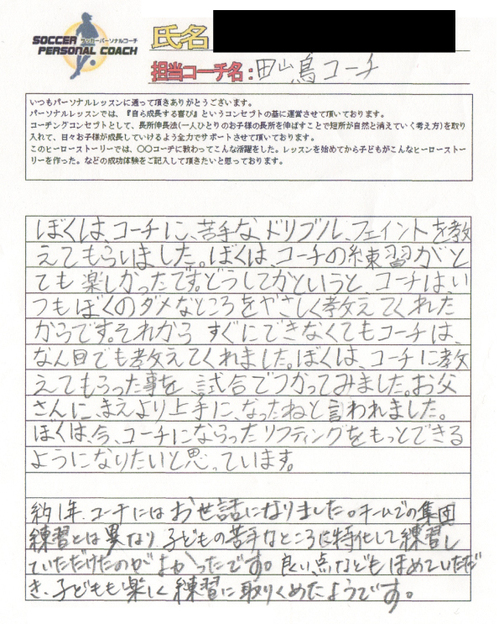 SOCCER サッカーパーソナルコーチ
PERSONAL COACH
氏名
担当コーチ名：田山鳥コーチ
いつもパーソナルレッスンに通って頂きありがとうございます。
パーソナルレッスンでは、『自ら成長する喜び』というコンセプトの基に運営させて頂いております。
コーチングコンセプトとして、長所伸長法（一人ひとりのお子様の長所を伸ばすことで短所が自然と消えていく考え方）を取り
入れて、日々お子様が成長していけるよう全力でサポートさせて頂いております。
このヒーローストーリーでは、〇〇コーチに教わってこんな活躍をした。レッスンを始めてから子どもがこんなヒーロースト
リーを作った。などの成功体験をご記入して頂きたいと思っております。
ぼくは、コーチに、苦手なドリブル、フェイントを教
えてもらいました。ぼくは、コーチの練習がと
ても楽しかったです。どうしてかというと、コーチはい
つもぼくのダメなところをやさしく教えてくれた
からです。それから すぐにできなくてもコーチは、
なん回でも教えてくれました。ぼくは、コーチに教
えてもらった事を、試合でつかってみました。お父
さんに、まえより上手に、なったねと言われました。
ぼくは、今、コーチにならったリフティングをもっとできる
ようになりたいと思っています。
約1年、コーチにはお世話になりました。チームでの集団
練習とは異なり子どもの苦手なところに特化して練習し
ていただけたのがよかったです。良い点などもほめていただ
き、子どもも楽しく練習に取りくめたようです。